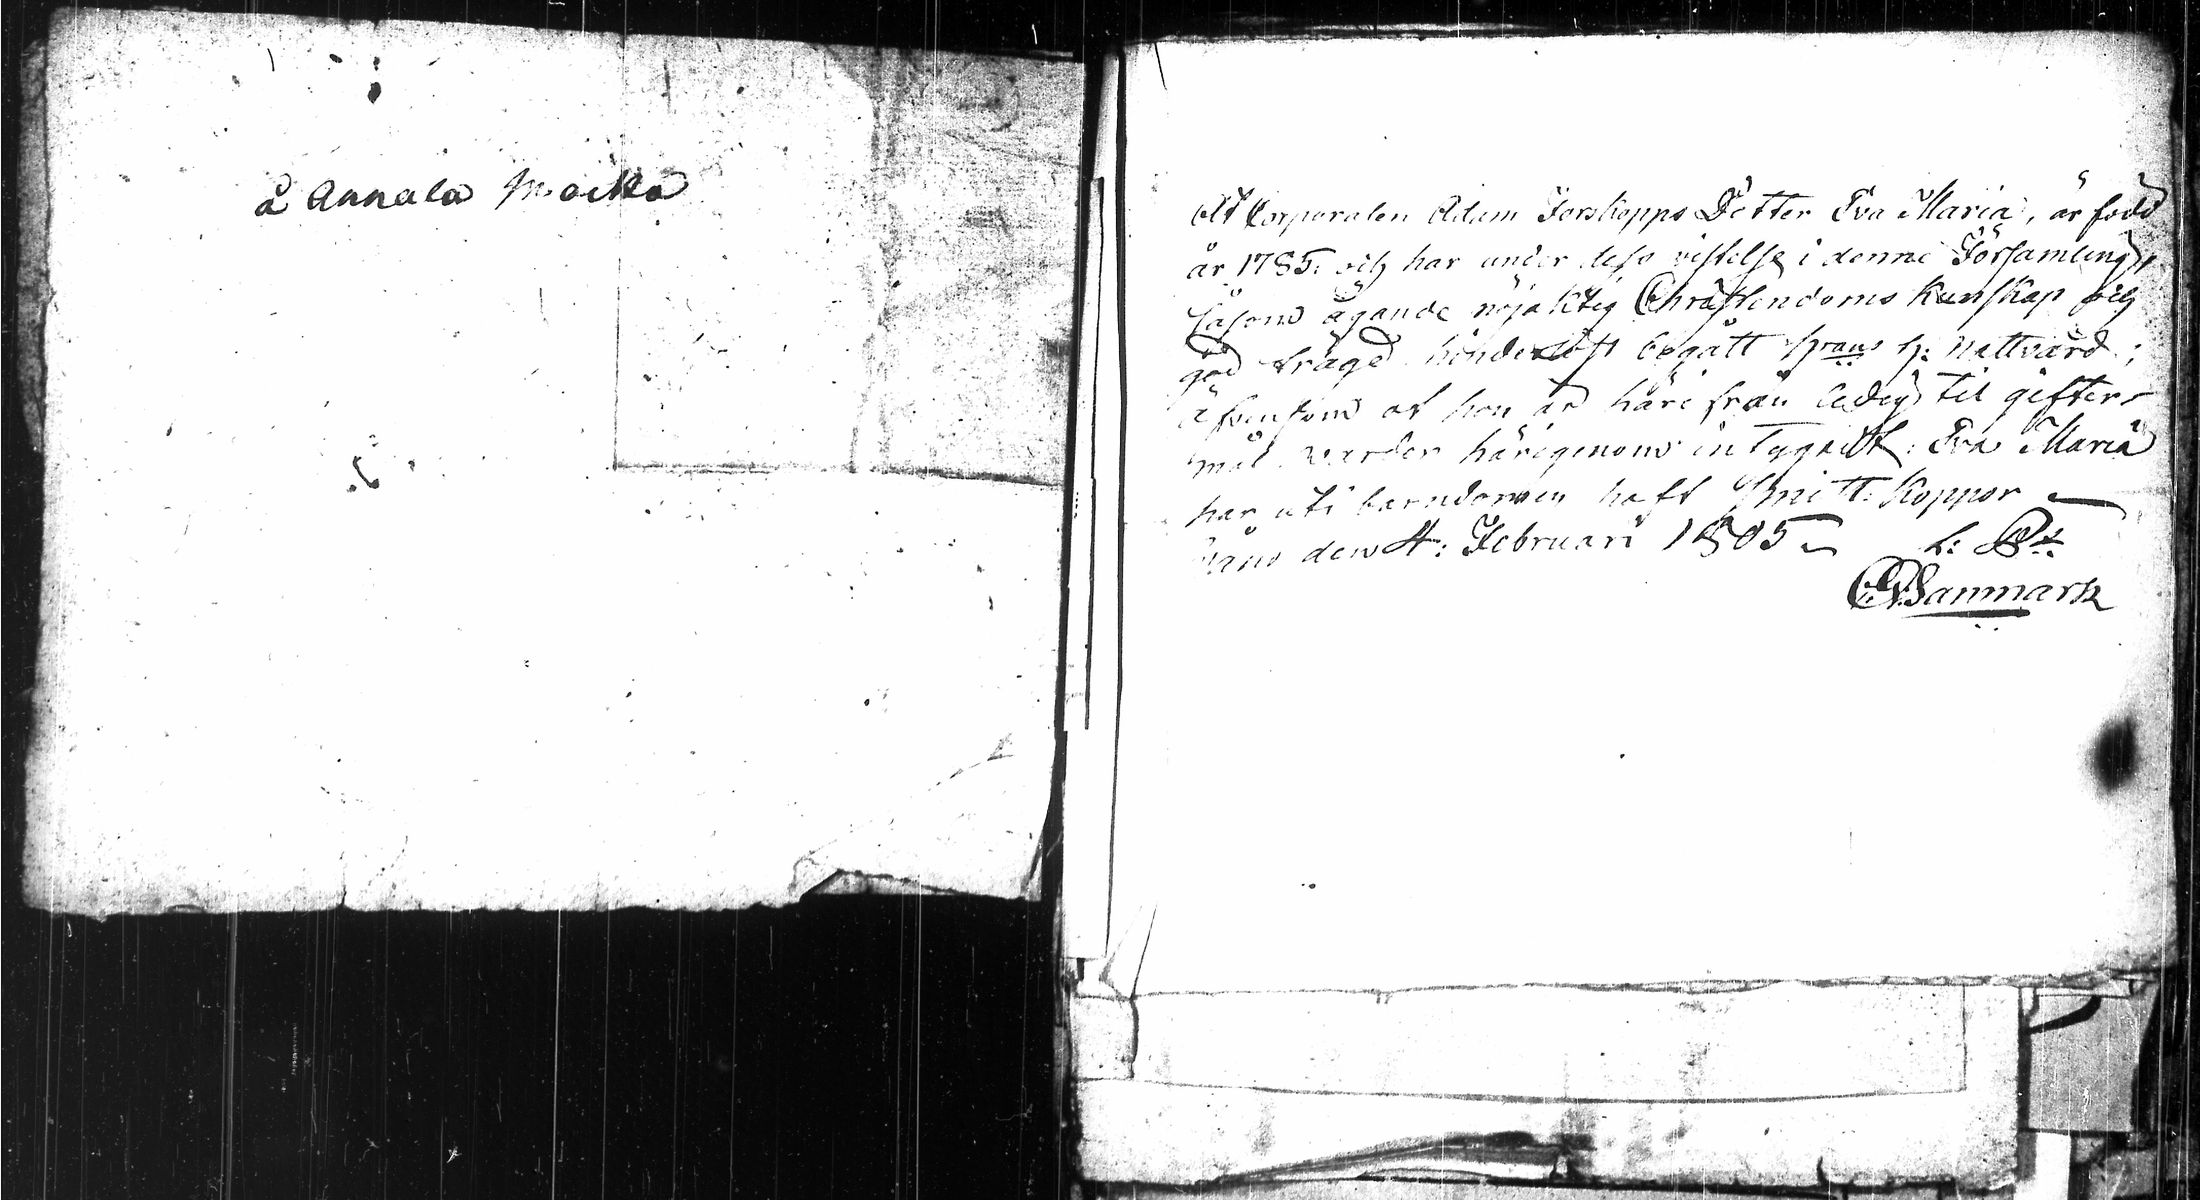 å Annala Macka
At Corporalen Adam Forskopps Dotter Eva Maria, är född
år 1785. och har under dess vistelse i denne Församling,
såsom ägande nöjaktig Christendoms kunskap och
god fräged hinderlöst begått h: nattvard;
äfvensom at hon är härifrån ledig til gifter-
mål varder härigenom intygadt. Eva Maria
har uti barndomen haft Smitt-koppor
den 4: Februari 1805
Sanmark